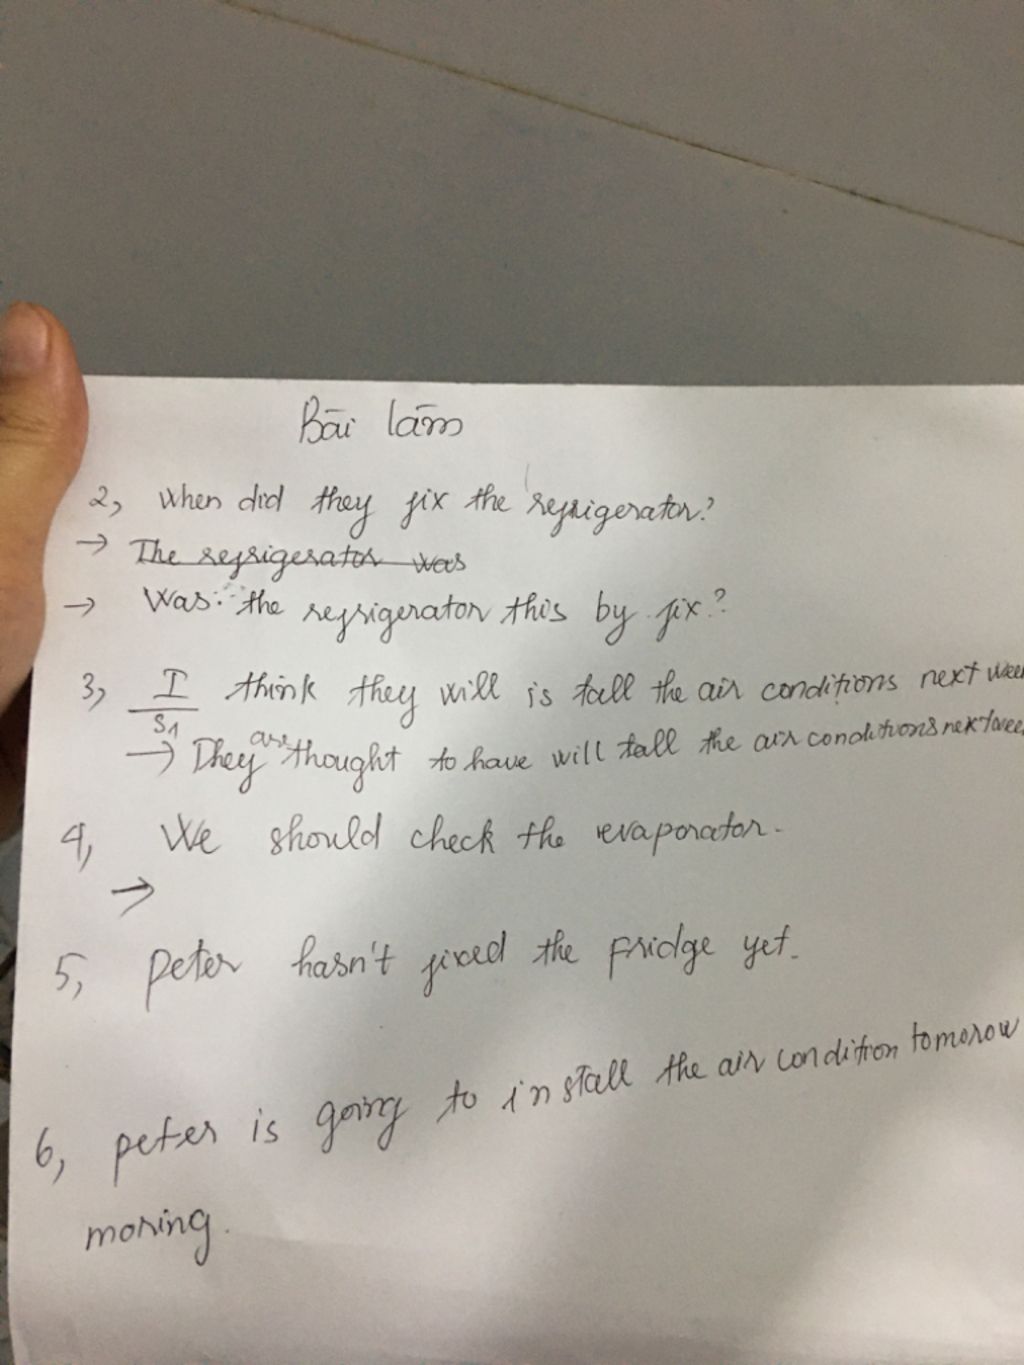 Bài làm
2, When did they fix the refrigerator?
→ The refrigerator was
→ Was the refrigerator this by fix?
3, I think they will is tall the air conditions next week
S1
→ They are thought to have will tall the air conditions next week
4, We should check the evaporator.
→
5, peter hasn't fixed the fridge yet.
6, peter is going to install the air condition tomorow
moring.